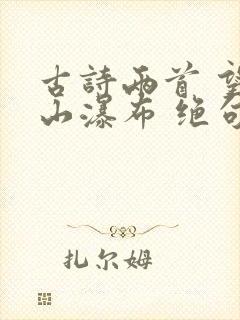 古詩兩首 望
山瀑布 绝句
扎尔姆